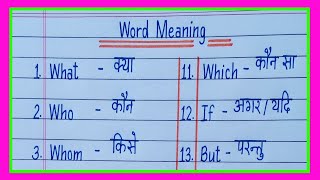 Word Meaning
1. What - क्या
2. Who - कौन
3. Whom - किसे
11. Which - कौन सा
12. If - अगर / यदि
13. But - परन्तु